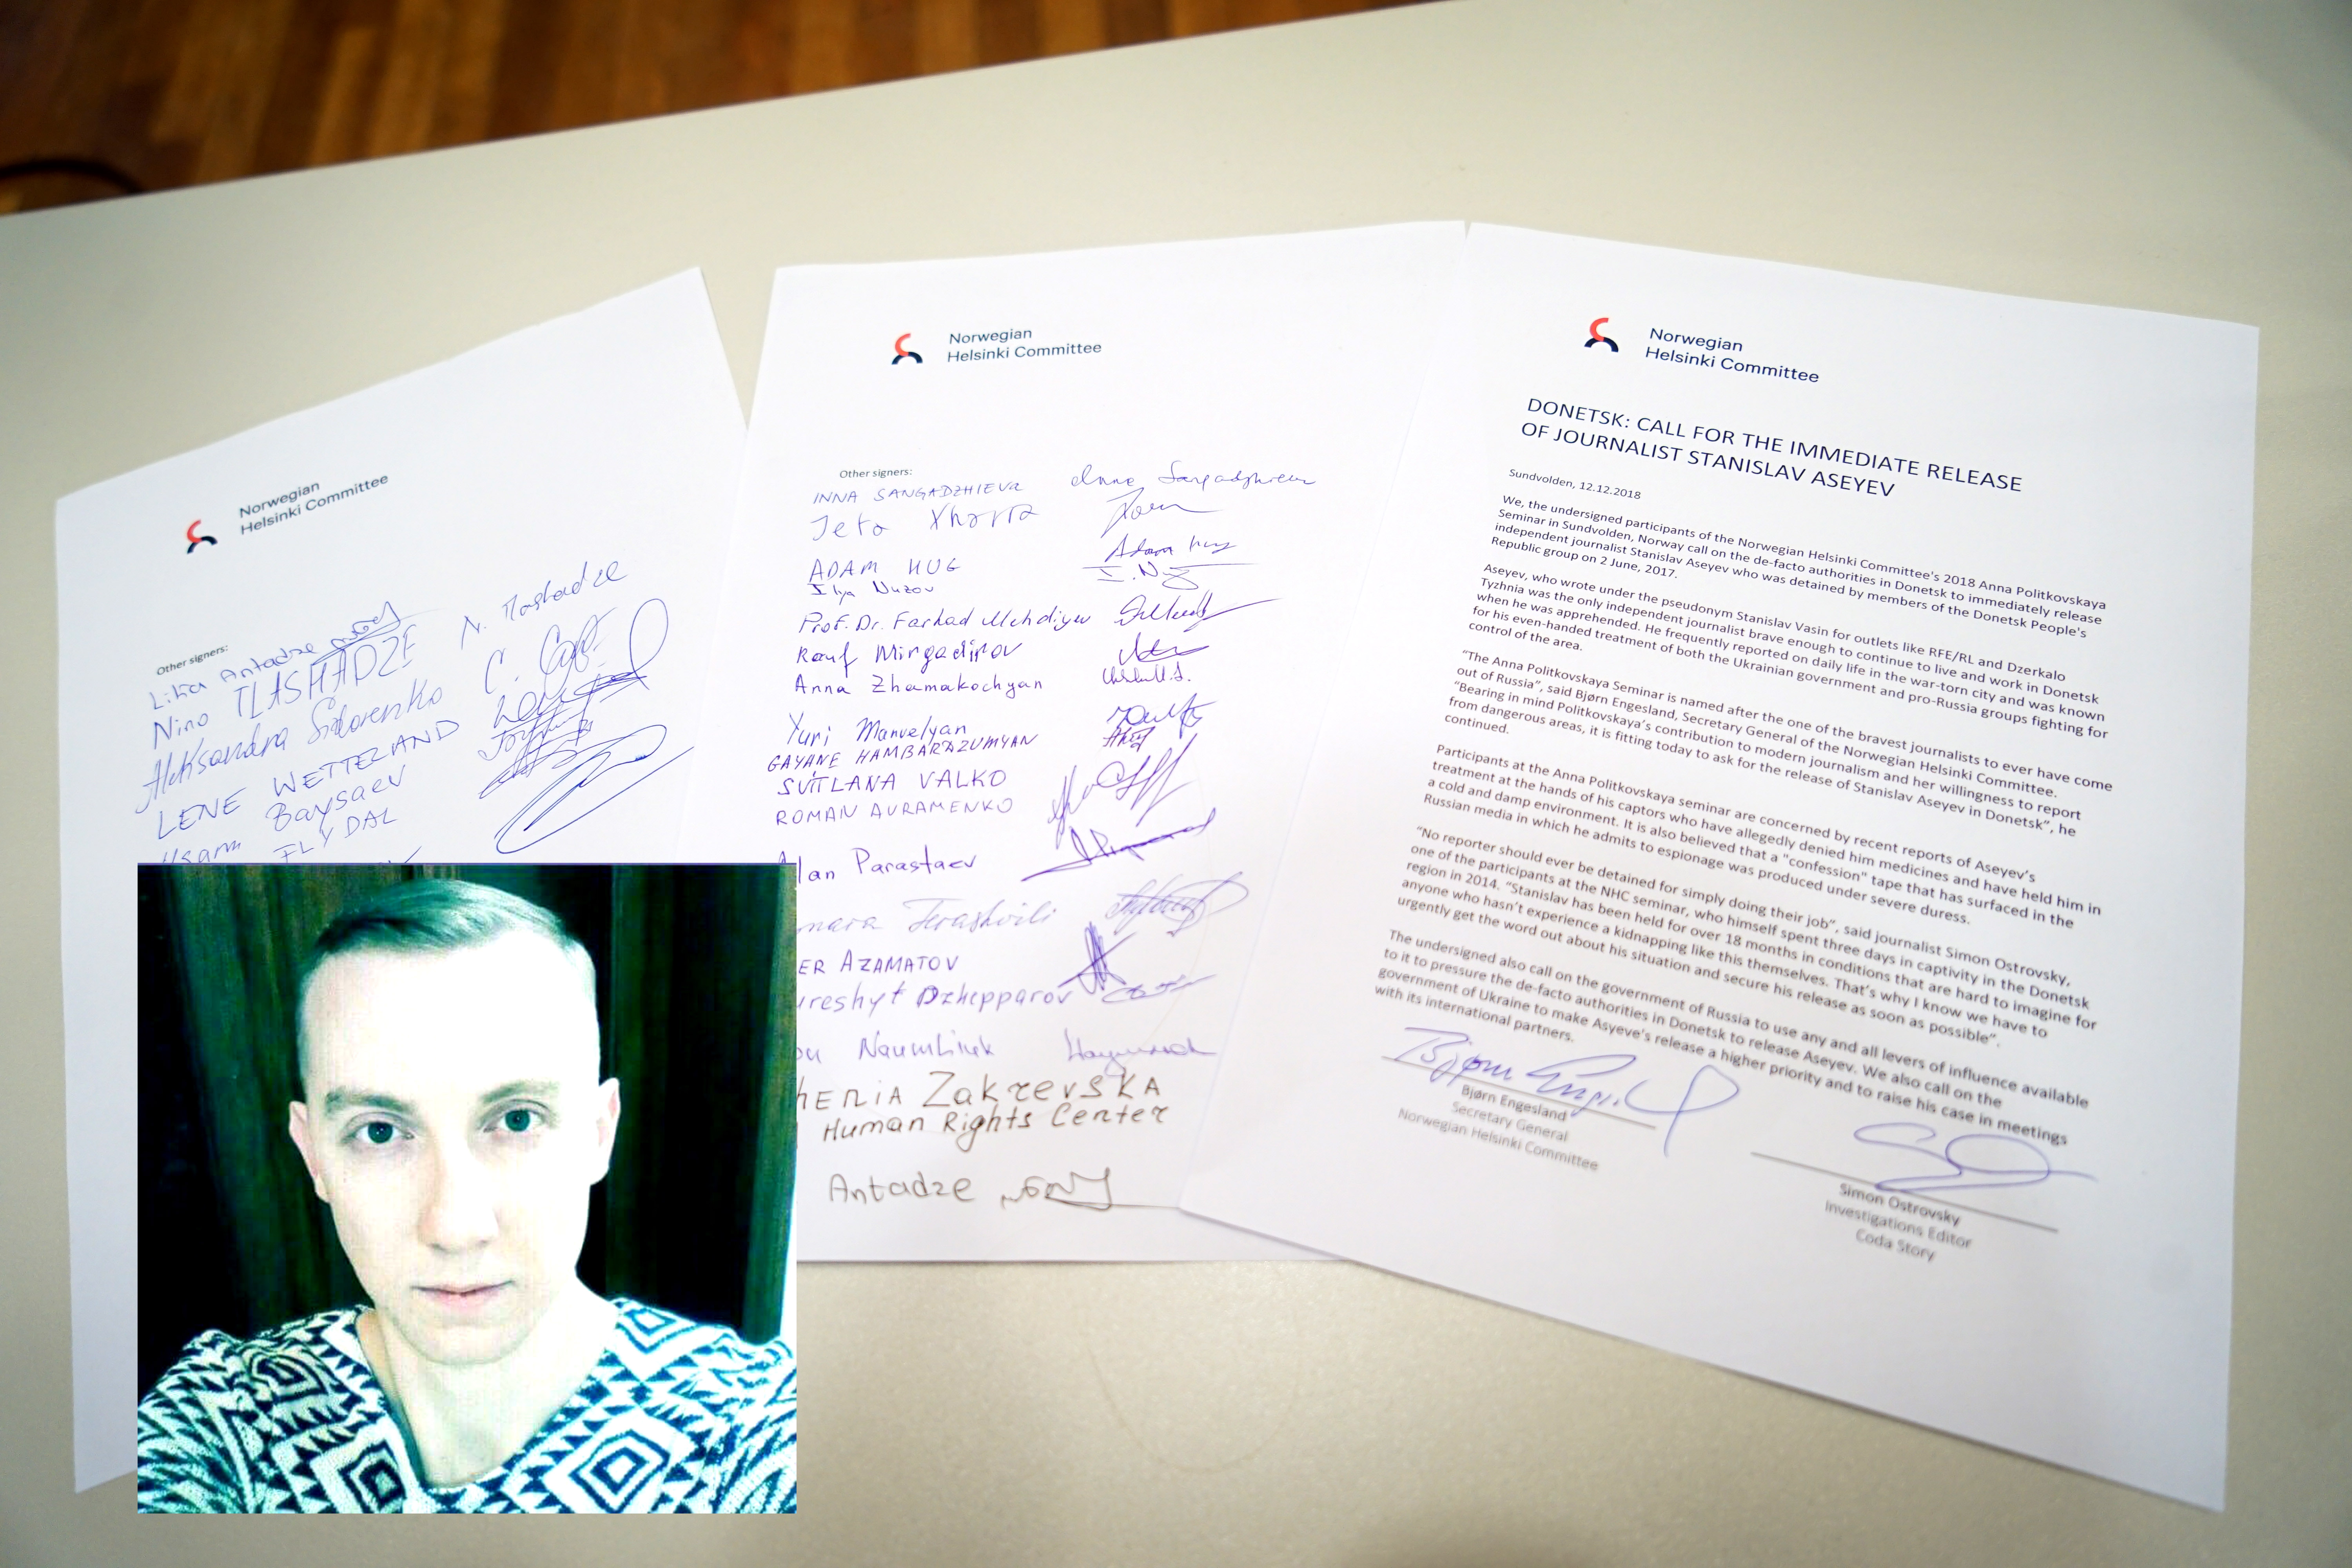 Norwegian
Helsinki Committee
Other signers:
Lilia Antadze
Nino TLASHADZE N. Tlashadze
Aleksandra Sidorenko
LENE WETTELAND
Usam Baysaev
FLYDAL
Norwegian
Helsinki Committee
Other signers:
INNA SANGADZHIEVA Inna Sangadzhieva
Jeta Xharra
ADAM HUG Adam Hug
Ilya Nuzov I. Nuz
Prof. Dr. Farhad Mehdiyev
Rauf Mirgadirov
Anna Zhamakochyan
Yuri Manvelyan
GAYANE HAMBARDZUMYAN
SVITLANA VALKO
ROMAN AVRAMENKO
lan Parastaev
mara
ER AZAMATOV
ureshyt Dzhepparov
Zakrevska
Human Rights Center
Antadze
Norwegian
Helsinki Committee
DONETSK: CALL FOR THE IMMEDIATE RELEASE
OF JOURNALIST STANISLAV ASEYEV
Sundvolden, 12.12.2018
We, the undersigned participants of the Norwegian Helsinki Committee's 2018 Anna Politkovskaya
Seminar in Sundvolden, Norway call on the de-facto authorities in Donetsk to immediately release
independent journalist Stanislav Aseyev who was detained by members of the Donetsk People's
Republic group on 2 June, 2017.
Aseyev, who wrote under the pseudonym Stanislav Vasin for outlets like RFE/RL and Dzerkalo
Tyzhnia was the only independent journalist brave enough to continue to live and work in Donetsk
when he was apprehended. He frequently reported on daily life in the war-torn city and was known
for his even-handed treatment of both the Ukrainian government and pro-Russia groups fighting for
control of the area.
"The Anna Politkovskaya Seminar is named after the one of the bravest journalists to ever have come
out of Russia", said Bjørn Engesland, Secretary General of the Norwegian Helsinki Committee.
"Bearing in mind Politkovskaya's contribution to modern journalism and her willingness to report
from dangerous areas, it is fitting today to ask for the release of Stanislav Aseyev in Donetsk", he
continued.
Participants at the Anna Politkovskaya seminar are concerned by recent reports of Aseyev's
treatment at the hands of his captors who have allegedly denied him medicines and have held him in
a cold and damp environment. It is also believed that a "confession" tape that has surfaced in the
Russian media in which he admits to espionage was produced under severe duress.
"No reporter should ever be detained for simply doing their job", said journalist Simon Ostrovsky,
one of the participants at the NHC seminar, who himself spent three days in captivity in the Donetsk
region in 2014. "Stanislav has been held for over 18 months in conditions that are hard to imagine for
anyone who hasn't experience a kidnapping like this themselves. That's why I know we have to
urgently get the word out about his situation and secure his release as soon as possible".
The undersigned also call on the government of Russia to use any and all levers of influence available
to it to pressure the de-facto authorities in Donetsk to release Aseyev. We also call on the
government of Ukraine to make Asyeve's release a higher priority and to raise his case in meetings
with its international partners.
Bjørn Engesland
Secretary General
Norwegian Helsinki Committee
Simon Ostrovsky
Investigations Editor
Coda Story